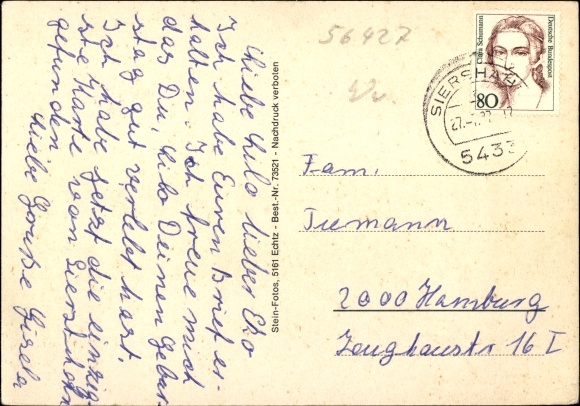 Liebe Lilo lieber Otto
Ich habe Euren Brief er-
halten. Ich freue mich
das Du, Lilo Deinen Gebur-
stag gut verlebt hast.
Ich habe jetzt die einzig-
ste Karte von Siershahn
gefunden
Liebe Grüße Gisela
Stein-Fotos, 5161 Echtz - Best.-Nr. 73521 - Nachdruck verboten
56427
Clara Schumann
Deutsche Bundespost
80
SIERSHAHN
5433
Fam.
Tiemann
2000 Hamburg
Zeughausstr 16 I